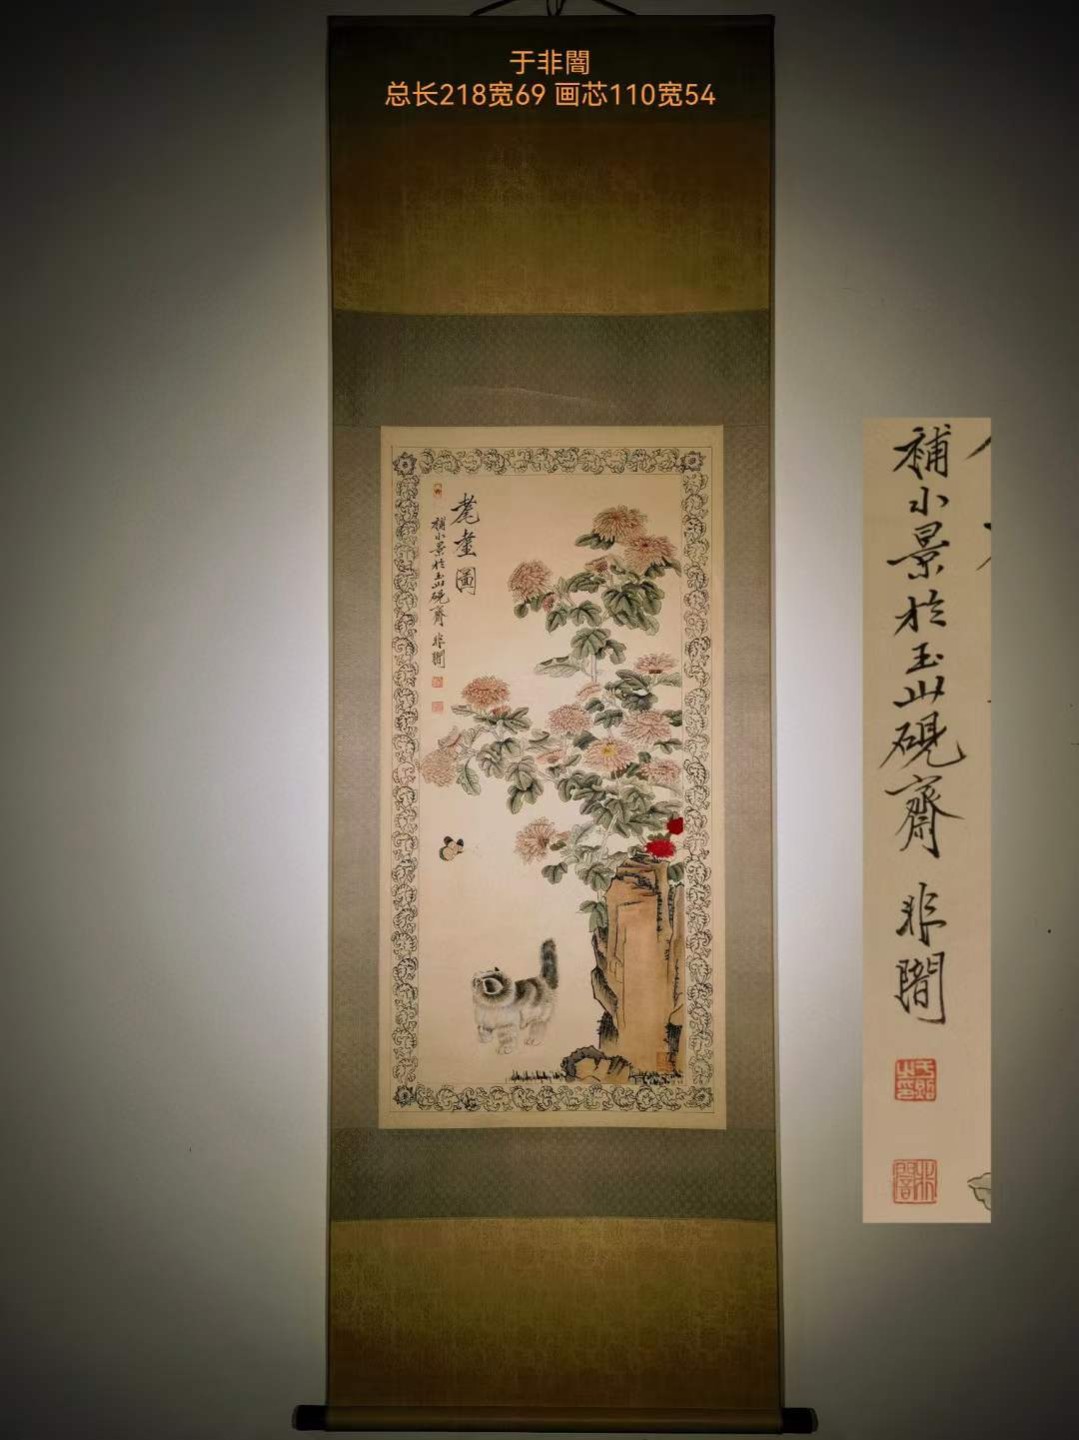 于非闇
总长218宽69 画芯110宽54
耄耋圖
補小景於玉山硯齋 非闇
補小景於玉山硯齋 非闇
非闇